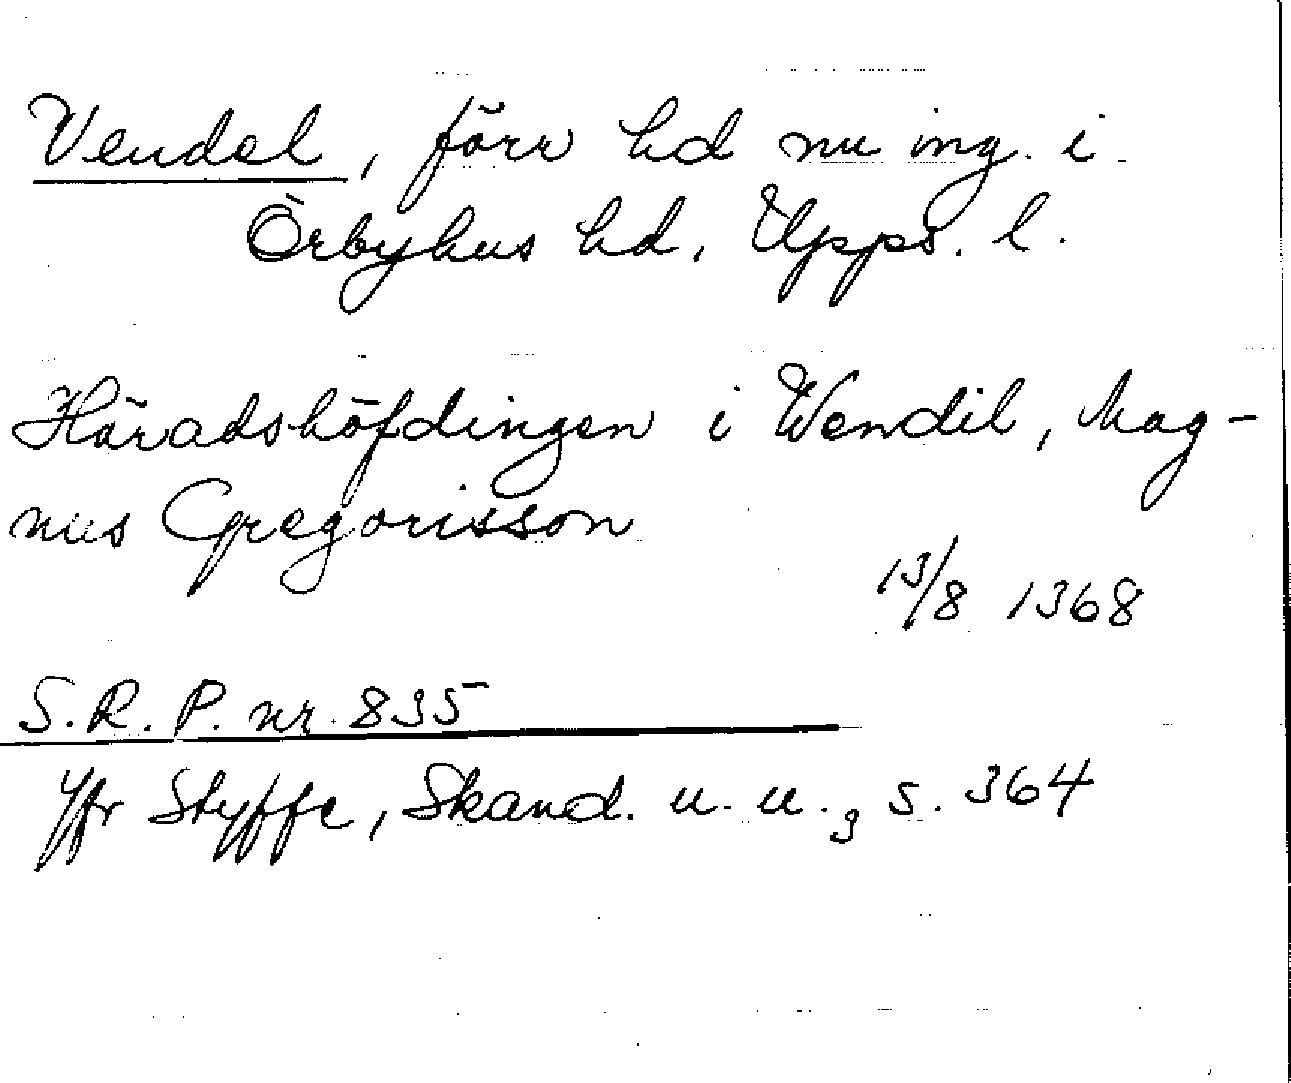 Vendel, förr hd nu ing. i
Örbyhus hd, Upps. l.
Häradshöfdingen i Wendil, Mag-
nus Gregorisson
13/8 1368
S.R.P. nr. 835
Jfr Styffe, Skand. u. u.3 s. 364